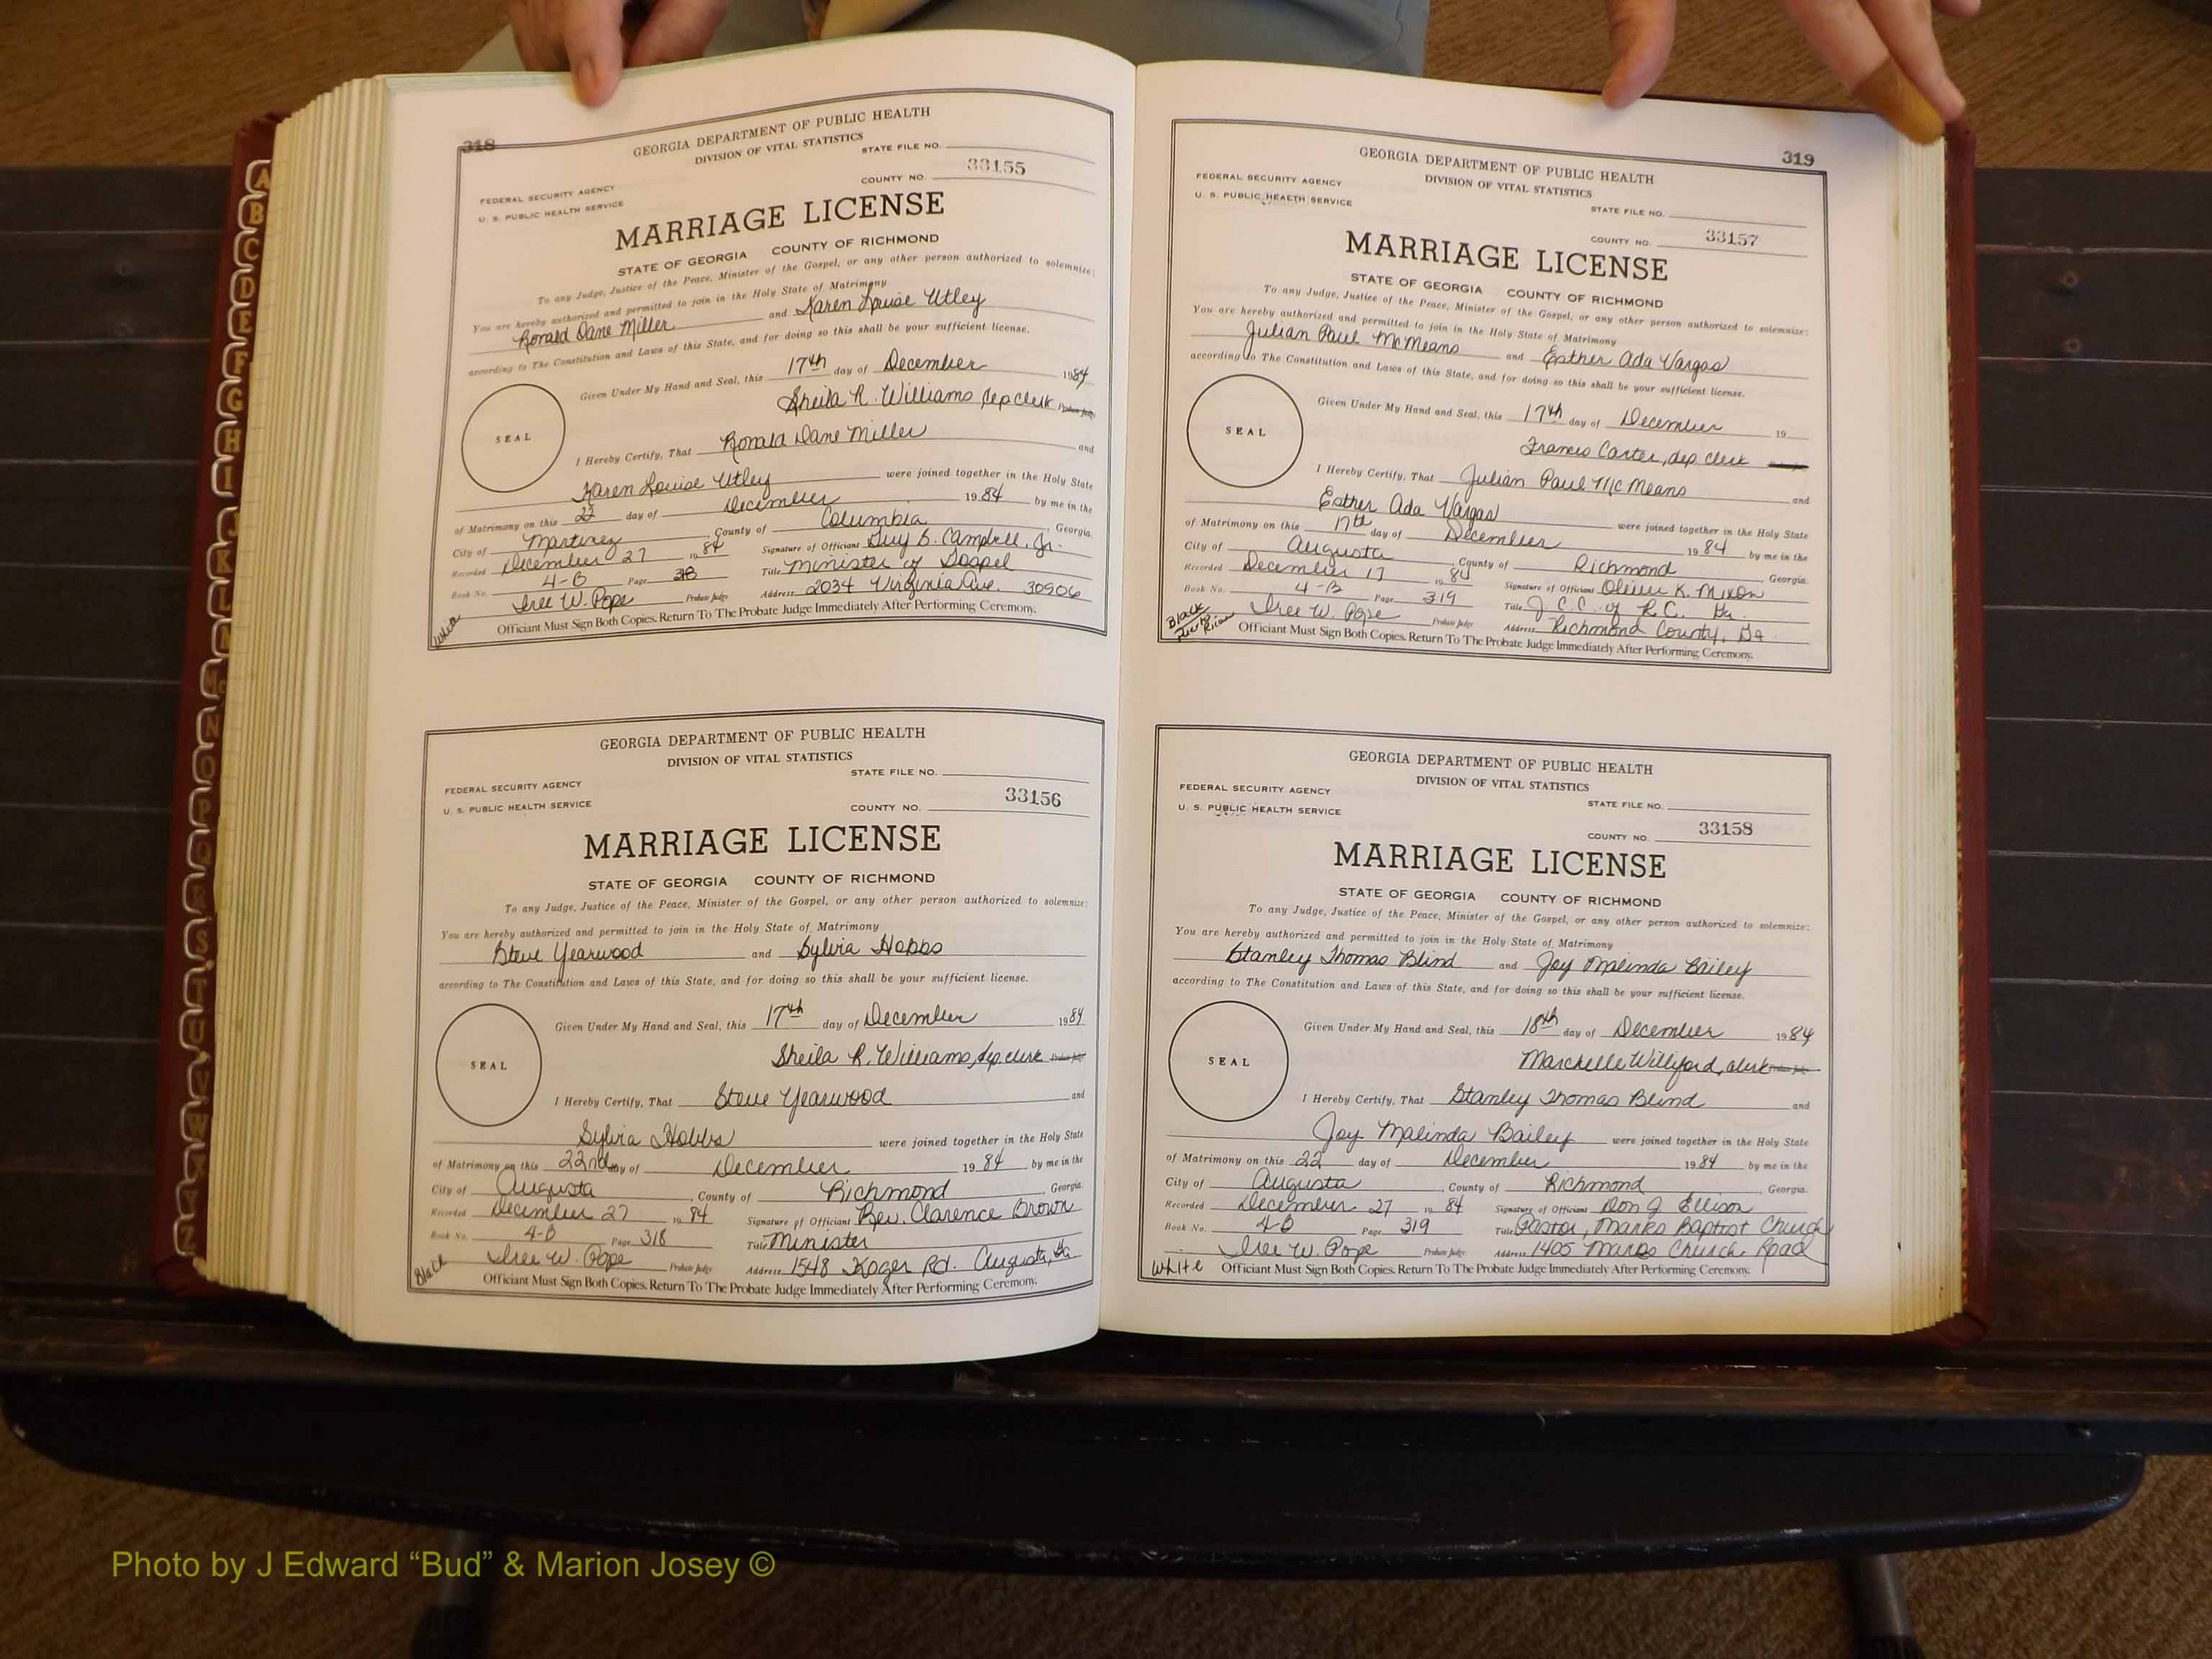 318
GEORGIA DEPARTMENT OF PUBLIC HEALTH
DIVISION OF VITAL STATISTICS
STATE FILE NO.
FEDERAL SECURITY AGENCY
COUNTY NO. 33155
U. S. PUBLIC HEALTH SERVICE
MARRIAGE LICENSE
STATE OF GEORGIA COUNTY OF RICHMOND
To any Judge, Justice of the Peace, Minister of the Gospel, or any other person authorized to solemnize:
You are hereby authorized and permitted to join in the Holy State of Matrimony
Ronald Dane Miller and Karen Louise Utley
according to The Constitution and Laws of this State, and for doing so this shall be your sufficient license.
Given Under My Hand and Seal, this 17th day of December 1984
Sheila R. Williams, dep clerk Probate Judge
SEAL
I Hereby Certify, That Ronald Dane Miller and
Karen Louise Utley were joined together in the Holy State
of Matrimony on this 22 day of December 1984 by me in the
City of Martinez, County of Columbia, Georgia.
Recorded December 27 1984 Signature of Officiant Guy B. Campbell, Jr.
Book No. 4-B Page 318 Title Minister of Gospel
Iree W. Pope Probate Judge Address 2034 Virginia Ave. 30906
White
Officiant Must Sign Both Copies. Return To The Probate Judge Immediately After Performing Ceremony.
GEORGIA DEPARTMENT OF PUBLIC HEALTH
DIVISION OF VITAL STATISTICS
STATE FILE NO.
FEDERAL SECURITY AGENCY
U. S. PUBLIC HEALTH SERVICE
COUNTY NO. 33156
MARRIAGE LICENSE
STATE OF GEORGIA COUNTY OF RICHMOND
To any Judge, Justice of the Peace, Minister of the Gospel, or any other person authorized to solemnize:
You are hereby authorized and permitted to join in the Holy State of Matrimony
Steve Yearwood and Sylvia Hobbs
according to The Constitution and Laws of this State, and for doing so this shall be your sufficient license.
Given Under My Hand and Seal, this 17th day of December 1984
Sheila R. Williams, dep clerk Probate Judge
SEAL
I Hereby Certify, That Steve Yearwood and
Sylvia Hobbs were joined together in the Holy State
of Matrimony on this 22nd day of December 1984 by me in the
City of Augusta, County of Richmond, Georgia.
Recorded December 27 1984 Signature of Officiant Rev. Clarence Brown
Book No. 4-B Page 318 Title Minister
Iree W. Pope Probate Judge Address 1548 Koger Rd. Augusta, Ga
Black
Officiant Must Sign Both Copies. Return To The Probate Judge Immediately After Performing Ceremony.
319
GEORGIA DEPARTMENT OF PUBLIC HEALTH
DIVISION OF VITAL STATISTICS
FEDERAL SECURITY AGENCY
U. S. PUBLIC HEALTH SERVICE
STATE FILE NO.
COUNTY NO. 33157
MARRIAGE LICENSE
STATE OF GEORGIA COUNTY OF RICHMOND
To any Judge, Justice of the Peace, Minister of the Gospel, or any other person authorized to solemnize:
You are hereby authorized and permitted to join in the Holy State of Matrimony
Julian Paul McMeans and Esther Ada Vargas
according to The Constitution and Laws of this State, and for doing so this shall be your sufficient license.
Given Under My Hand and Seal, this 17th day of December 19
Frances Carter, dep clerk
SEAL
I Hereby Certify, That Julian Paul McMeans and
Esther Ada Vargas were joined together in the Holy State
of Matrimony on this 17th day of December 1984 by me in the
City of Augusta, County of Richmond, Georgia.
Recorded December 17 1984 Signature of Officiant Oliver K. Mixon
Book No. 4-B Page 319 Title J C.C. of R.C. Ga.
Iree W. Pope Probate Judge Address Richmond County, Ga
Black
Puerto Rican
Officiant Must Sign Both Copies. Return To The Probate Judge Immediately After Performing Ceremony.
GEORGIA DEPARTMENT OF PUBLIC HEALTH
DIVISION OF VITAL STATISTICS
FEDERAL SECURITY AGENCY
STATE FILE NO.
U. S. PUBLIC HEALTH SERVICE
COUNTY NO. 33158
MARRIAGE LICENSE
STATE OF GEORGIA COUNTY OF RICHMOND
To any Judge, Justice of the Peace, Minister of the Gospel, or any other person authorized to solemnize:
You are hereby authorized and permitted to join in the Holy State of Matrimony
Stanley Thomas Blind and Joy Malinda Bailey
according to The Constitution and Laws of this State, and for doing so this shall be your sufficient license.
Given Under My Hand and Seal, this 18th day of December 1984
Marchelle Williford, clerk Probate Judge
SEAL
I Hereby Certify, That Stanley Thomas Blind and
Joy Malinda Bailey were joined together in the Holy State
of Matrimony on this 22 day of December 1984 by me in the
City of Augusta, County of Richmond, Georgia.
Recorded December 27 1984 Signature of Officiant Don J Ellison
Book No. 4-B Page 319 Title Pastor, Marks Baptist Church
Iree W. Pope Probate Judge Address 1405 Marks Church Road
White
Officiant Must Sign Both Copies. Return To The Probate Judge Immediately After Performing Ceremony.
A
B
C
D
E
F
G
H
I
J
K
L
M
Mc
N
O
P
Q
R
S
T
U
V
W
X
Y
Z
Photo by J Edward “Bud” & Marion Josey ©